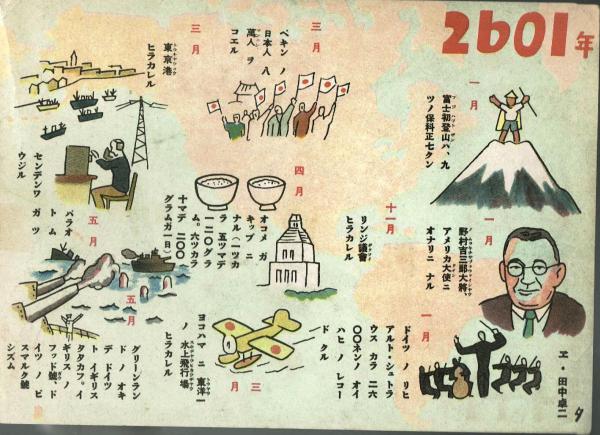 2601年
一月
富士初登山ハ、九
ツノ保科正七クン
一月
野村吉三郎大將、
アメリカ大使ニ
オナリニ ナル
一月
ドイツ ノ リヒ
アルト・シュトラ
ウス カラ 二六
〇〇ネンノ オイ
ハヒ ノ レコー
ド クル
ヱ・田中卓二
三月
ペキン ノ
日本人 八
萬人 ヲ
コエル
十一月
リンジ議會
ヒラカレル
四月
オコメ ガ
キップ ニ
ナル(一ツカ
ラ 五ツマデ
一二〇グラ
ム。六ツカラ
十マデ 二〇〇
グラムガ一日)
三月
ヨコハマ ニ 東洋一
ノ 水上飛行場
ヒラカレル
三月
東京港
ヒラカレル
五月
パラオ
ト ム
センデンワ ガ ツ
ウジル
五月
グリーンラン
ド ノ オキ
デ ドイツ
ト イギリス
タタカフ。イ
ギリス ノ
フッド號、ド
イツ ノ ビ
スマルク號
シズム